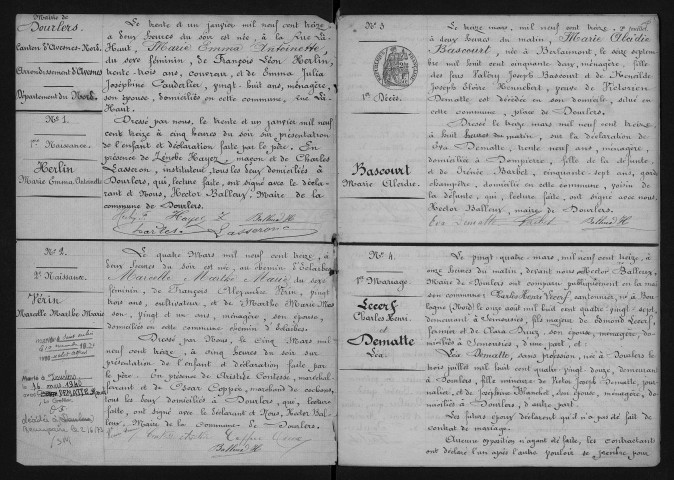 Mairie de
Dourlers.
Canton d'Avesnes-Nord.
Arrondissement d'Avesnes
Département du Nord.
Le trente et un janvier mil neuf cent treize
à deux heures du soir est née, à la Rue
Haut, Marie Emma Antoinette,
du sexe féminin, de François Léon Herlin,
trente-trois ans, couvreur, et de Emma Julia
Joséphine vingt-huit ans, ménagère,
son épouse, domiciliés en cette commune, rue
Haut.
N° 1.
1re Naissance.
Herlin
Marie Emma Antoinette
Dressé par nous, le trente et un janvier mil neuf
cent treize à cinq heures du soir sur présentation
de l'enfant et déclaration faite par le père. En
présence de Zénobe Hayez, maçon et de Charles
Lasseron, instituteur, tous les deux domiciliés à
Dourlers, qui, lecture faite, ont signé avec le décla-
rant et Nous, Hector Balleux, Maire de la
commune de Dourlers.
Hayez Z Balleux H
Charles Lasseron
N° 2.
2e Naissance.
Périn
Marcelle Marthe Marie
Le quatre Mars mil neuf cent treize, à
deux heures du soir est née, au chemin d'Eclaibes
Marcelle Marthe Marie du sexe
féminin, de François Alexandre Périn, vingt
trois ans, cultivateur, et de Marthe Marie
son, vingt et un ans, ménagère, son épouse,
domiciliés en cette commune chemin d'Eclaibes.
Dressé par Nous, le Cinq Mars mil
neuf cent treize, à cinq heures du soir sur
présentation de l'enfant et déclaration faite par
le père. En présence de Christide Contesse, maréchal-
ferrant et de Oscar Coppée, marchand de cochons,
tous les deux domiciliés à Dourlers, qui, lecture
faite, ont signé avec le déclarant et Nous, Hector Bal-
leux, Maire de la commune de Dourlers.
Coppée Oscar
Balleux H
Mariée à
16 mars 1940
avec DEMATTE
décédée à
le 2/6/72
N° 3
1er Décès.
Bascourt
Marie Aléidie.
Le treize mars, mil neuf cent treize,
à deux heures du matin, Marie Aléidie
Bascourt, née à Berlaimont, le seize septem-
bre mil huit cent cinquante deux, ménagère, fille
des feus Valéry Joseph Bascourt et de
Joseph Eloïre Hennebert, veuve de Victorien
Dematte est décédée en son domicile, situé en
cette commune, place de Dourlers.
Dressé le treize mars, mil neuf cent treize à
huit heures du matin, sur la déclaration de
Eva Dematte, trente neuf ans, ménagère,
domiciliée à Dompierre, fille de la défunte,
et de Irénée Barbet, cinquante sept ans, garde
champêtre, domicilié en cette commune, voisin de
la défunte, qui, lecture faite, ont signé avec nous,
Hector Balleux, maire de Dourlers.
Eva Dematte Balleux H
N° 4.
1er Mariage.
Lecerf
Charles Henri.
et
Dematte
Léa.
Le vingt-quatre mars, mil neuf cent treize, à
onze heures du matin, devant nous Hector Balleux,
Maire de Dourlers ont comparu publiquement en la mai-
son commune: Charles Henri Lecerf, cantonnier, né à Bou-
logne (Nord) le onze août mil huit cent quatre-vingt-sept,
demeurant à Semousies, fils majeur de Edmond Lecerf,
fermier et de Clara son épouse, ménagère, do-
miciliés à Semousies, d'une part; et
Léa Dematte, sans profession, née à Dourlers le
trois juillet mil huit cent quatre-vingt-douze, demeurant
à Dourlers, fille mineure de Victor Joseph Dematte, jour-
nalier, et de Joséphine Blanchet, son épouse, ménagère, do-
miciliés à Dourlers, d'autre part.
Les futurs époux déclarent qu'il n'a pas été fait de
contrat de mariage.
Aucune opposition n'ayant été faite, les contractants
ont déclaré l'un après l'autre vouloir se prendre pour